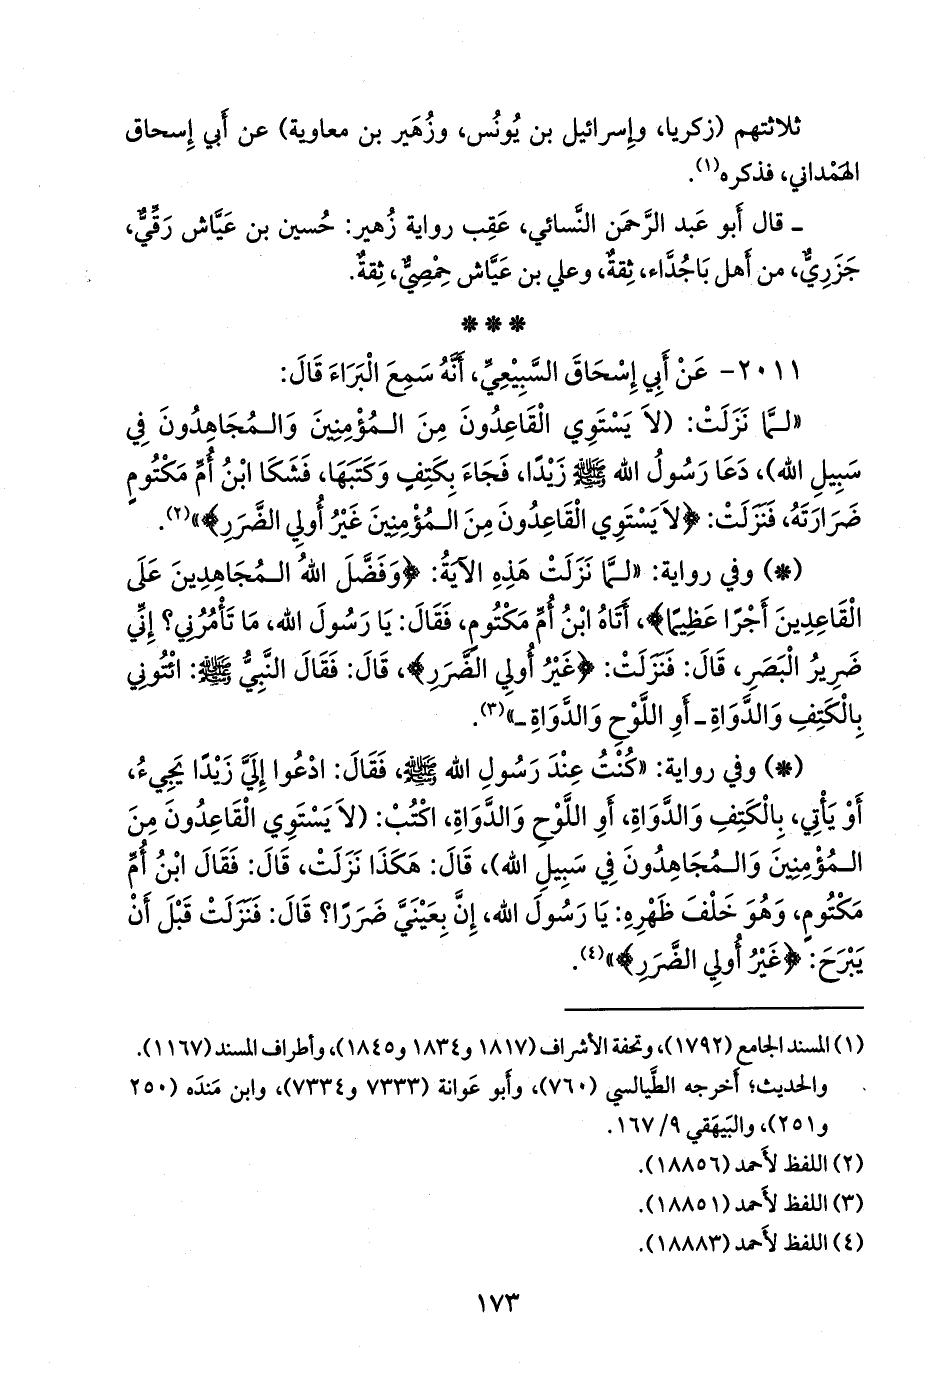 ثلاثتهم (زكريا، وإسرائيل بن يُونُس، وزُهَير بن معاوية) عن أَبي إِسحاق
الهَمْداني، فذكره(١).
ـ قال أَبو عبد الرَّحمَن النَّسائي، عَقِب رواية زُهير: حُسين بن عَيَّاش رَقِّيٌّ،
جَزَرِيٌّ، من أَهل بَاجُدَّاء، ثِقةٌ، وعلي بن عَيَّاش حِمْصِيٌّ، ثِقةٌ.
***
٢٠١١- عَنْ أَبِي إِسْحَاقَ السَّبِيعِيِّ، أَنَّهُ سَمِعَ الْبَرَاءَ قَالَ:
«لـمَّا نَزَلَتْ: (لاَ يَسْتَوِي الْقَاعِدُونَ مِنَ الـمُؤْمِنِينَ وَالـمُجَاهِدُونَ فِي
سَبِيلِ الله)، دَعَا رَسُولُ الله ﷺ زَيْدًا، فَجَاءَ بِكَتِفٍ وَكَتَبَهَا، فَشَكَا ابْنُ أُمِّ مَكْتُومٍ
ضَرَارَتَهُ، فَنَزَلَتْ: ﴿لاَ يَسْتَوِي الْقَاعِدُونَ مِنَ الـمُؤْمِنِينَ غَيْرُ أُولِي الضَّرَرِ﴾»(٢).
(*) وفي رواية: «لـمَّا نَزَلَتْ هَذِهِ الآيَةُ: ﴿وَفَضَّلَ اللهُ الـمُجَاهِدِينَ عَلَى
الْقَاعِدِينَ أَجْرًا عَظِيمًا﴾، أَتَاهُ ابْنُ أُمِّ مَكْتُومٍ، فَقَالَ: يَا رَسُولَ الله، مَا تَأْمُرُنِي؟ إِنِّي
ضَرِيرُ الْبَصَرِ، قَالَ: فَنَزَلَتْ: ﴿غَيْرُ أُولِي الضَّرَرِ﴾، قَالَ: فَقَالَ النَّبِيُّ ﷺ: ائْتُونِي
بِالْكَتِفِ وَالدَّوَاةِ ـ أَوِ اللَّوْحِ وَالدَّوَاةِ ـ»(٣).
(*) وفي رواية: «كُنْتُ عِنْدَ رَسُولِ الله ﷺ، فَقَالَ: ادْعُوا إِلَيَّ زَيْدًا يَجِيءُ،
أَوْ يَأْتِي، بِالْكَتِفِ وَالدَّوَاةِ، أَوِ اللَّوْحِ وَالدَّوَاةِ، اكْتُبْ: (لاَ يَسْتَوِي الْقَاعِدُونَ مِنَ
الـمُؤْمِنِينَ وَالـمُجَاهِدُونَ فِي سَبِيلِ الله)، قَالَ: هَكَذَا نَزَلَتْ، قَالَ: فَقَالَ ابْنُ أُمِّ
مَكْتُومٍ، وَهُوَ خَلْفَ ظَهْرِهِ: يَا رَسُولَ الله، إِنَّ بِعَيْنَيَّ ضَرَرًا؟ قَالَ: فَنَزَلَتْ قَبْلَ أَنْ
يَبْرَحَ: ﴿غَيْرُ أُولِي الضَّرَرِ﴾»(٤).
(١) المسند الجامع (١٧٩٢)، وتحفة الأشراف (١٨١٧ و١٨٣٤ و١٨٤٥)، وأطراف المسند (١١٦٧).
والحديث؛ أَخرجه الطَّيالسي (٧٦٠)، وأَبو عَوانة (٧٣٣٣ و٧٣٣٤)، وابن مَندَه (٢٥٠
و٢٥١)، والبَيهَقي ٩/ ١٦٧.
(٢) اللفظ لأَحمد (١٨٨٥٦).
(٣) اللفظ لأَحمد (١٨٨٥١).
(٤) اللفظ لأَحمد (١٨٨٨٣).
١٧٣